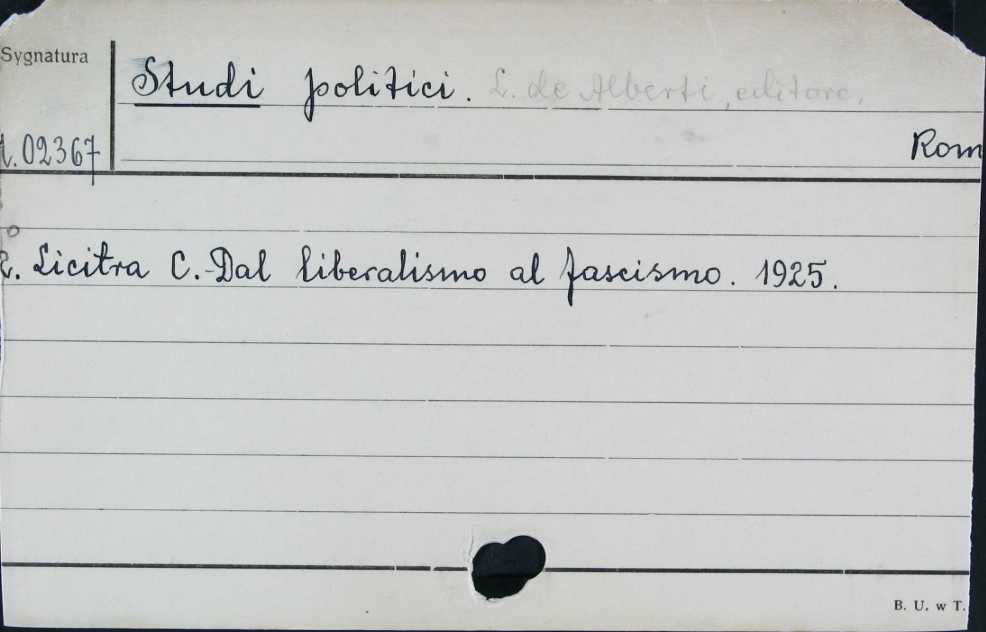 Sygnatura
Studi politici. L. de Alberti, editore.
02367
Rom
Licitra C.-Dal liberalismo al fascismo. 1925.
B. U. w T.